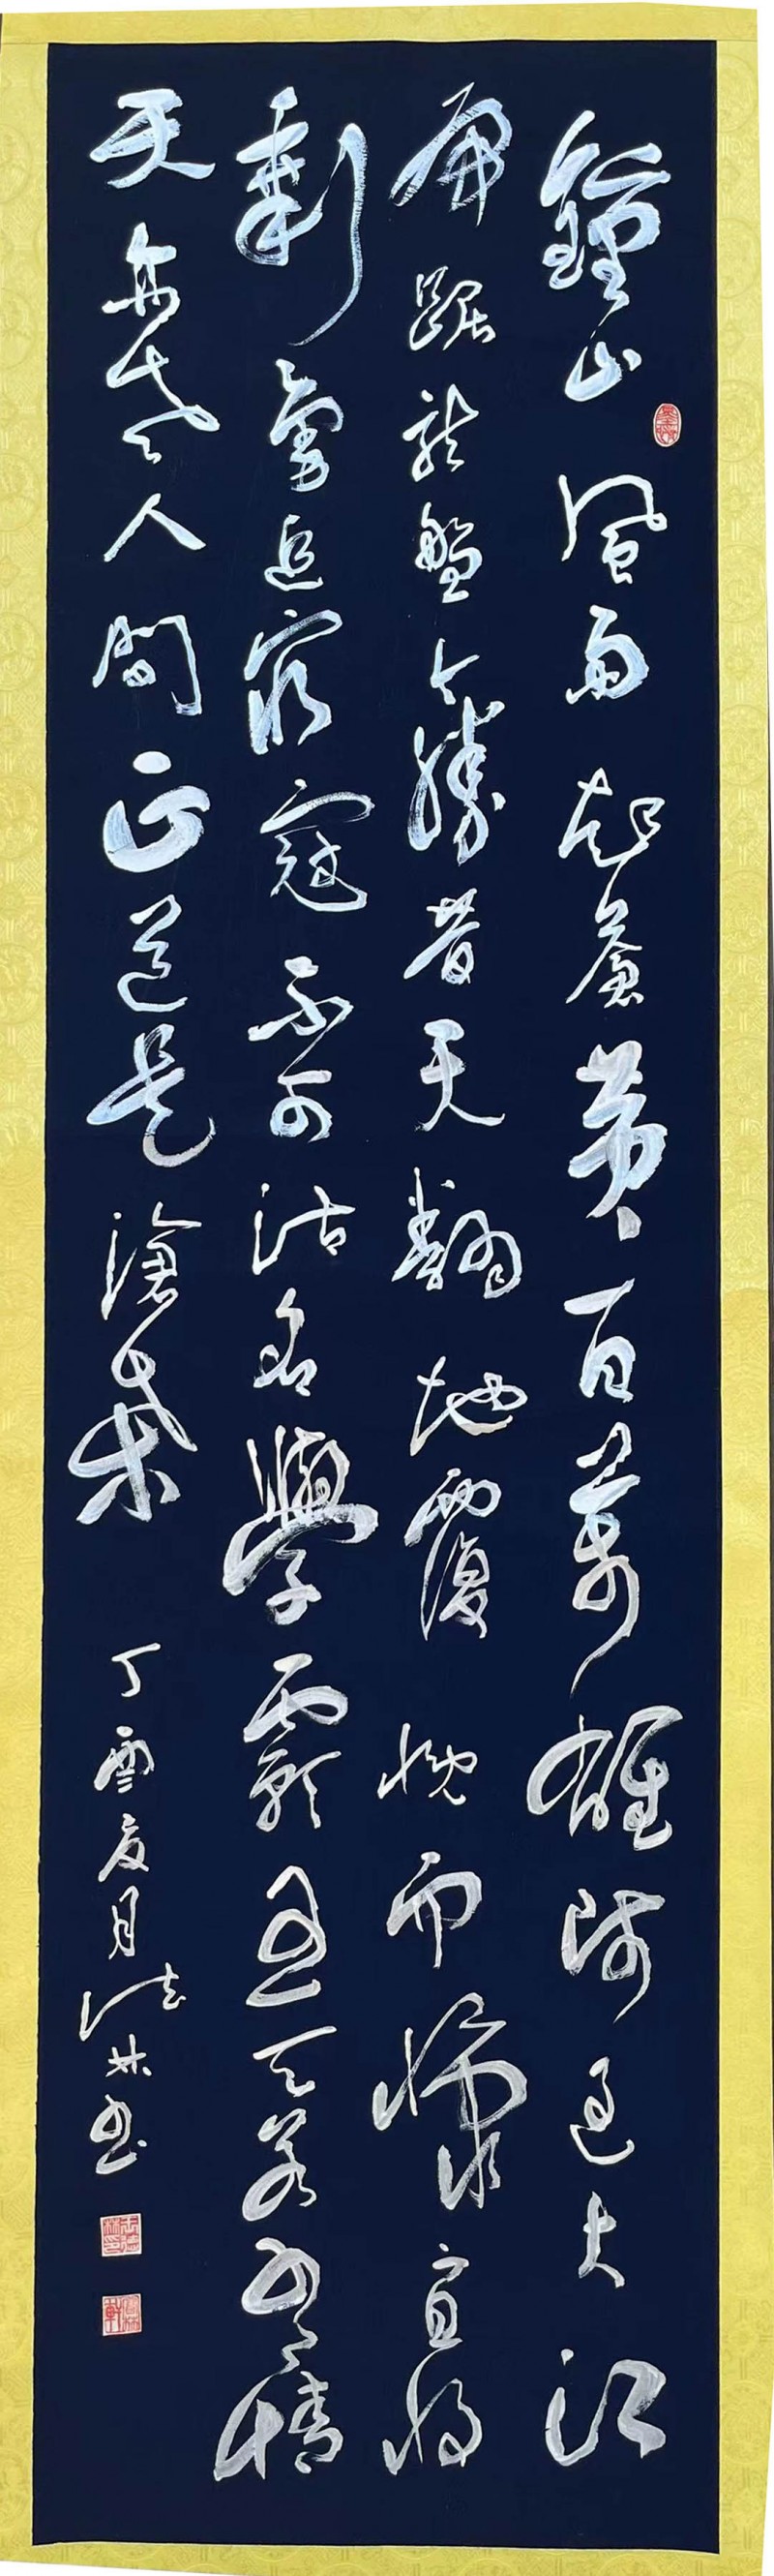 鐘山風雨起蒼黃百萬雄師過大江
虎踞龍盤今勝昔天翻地覆慨而慷宜將
剩勇追窮寇不可沽名學霸王天若有情
天亦老人間正道是滄桑
丁夏月法林书